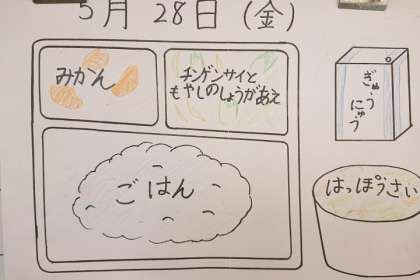 5月 28日 (金)
みかん
チンゲンサイと
もやしのしょうがあえ
ぎゅう
にゅう
ごはん
はっぽうさい